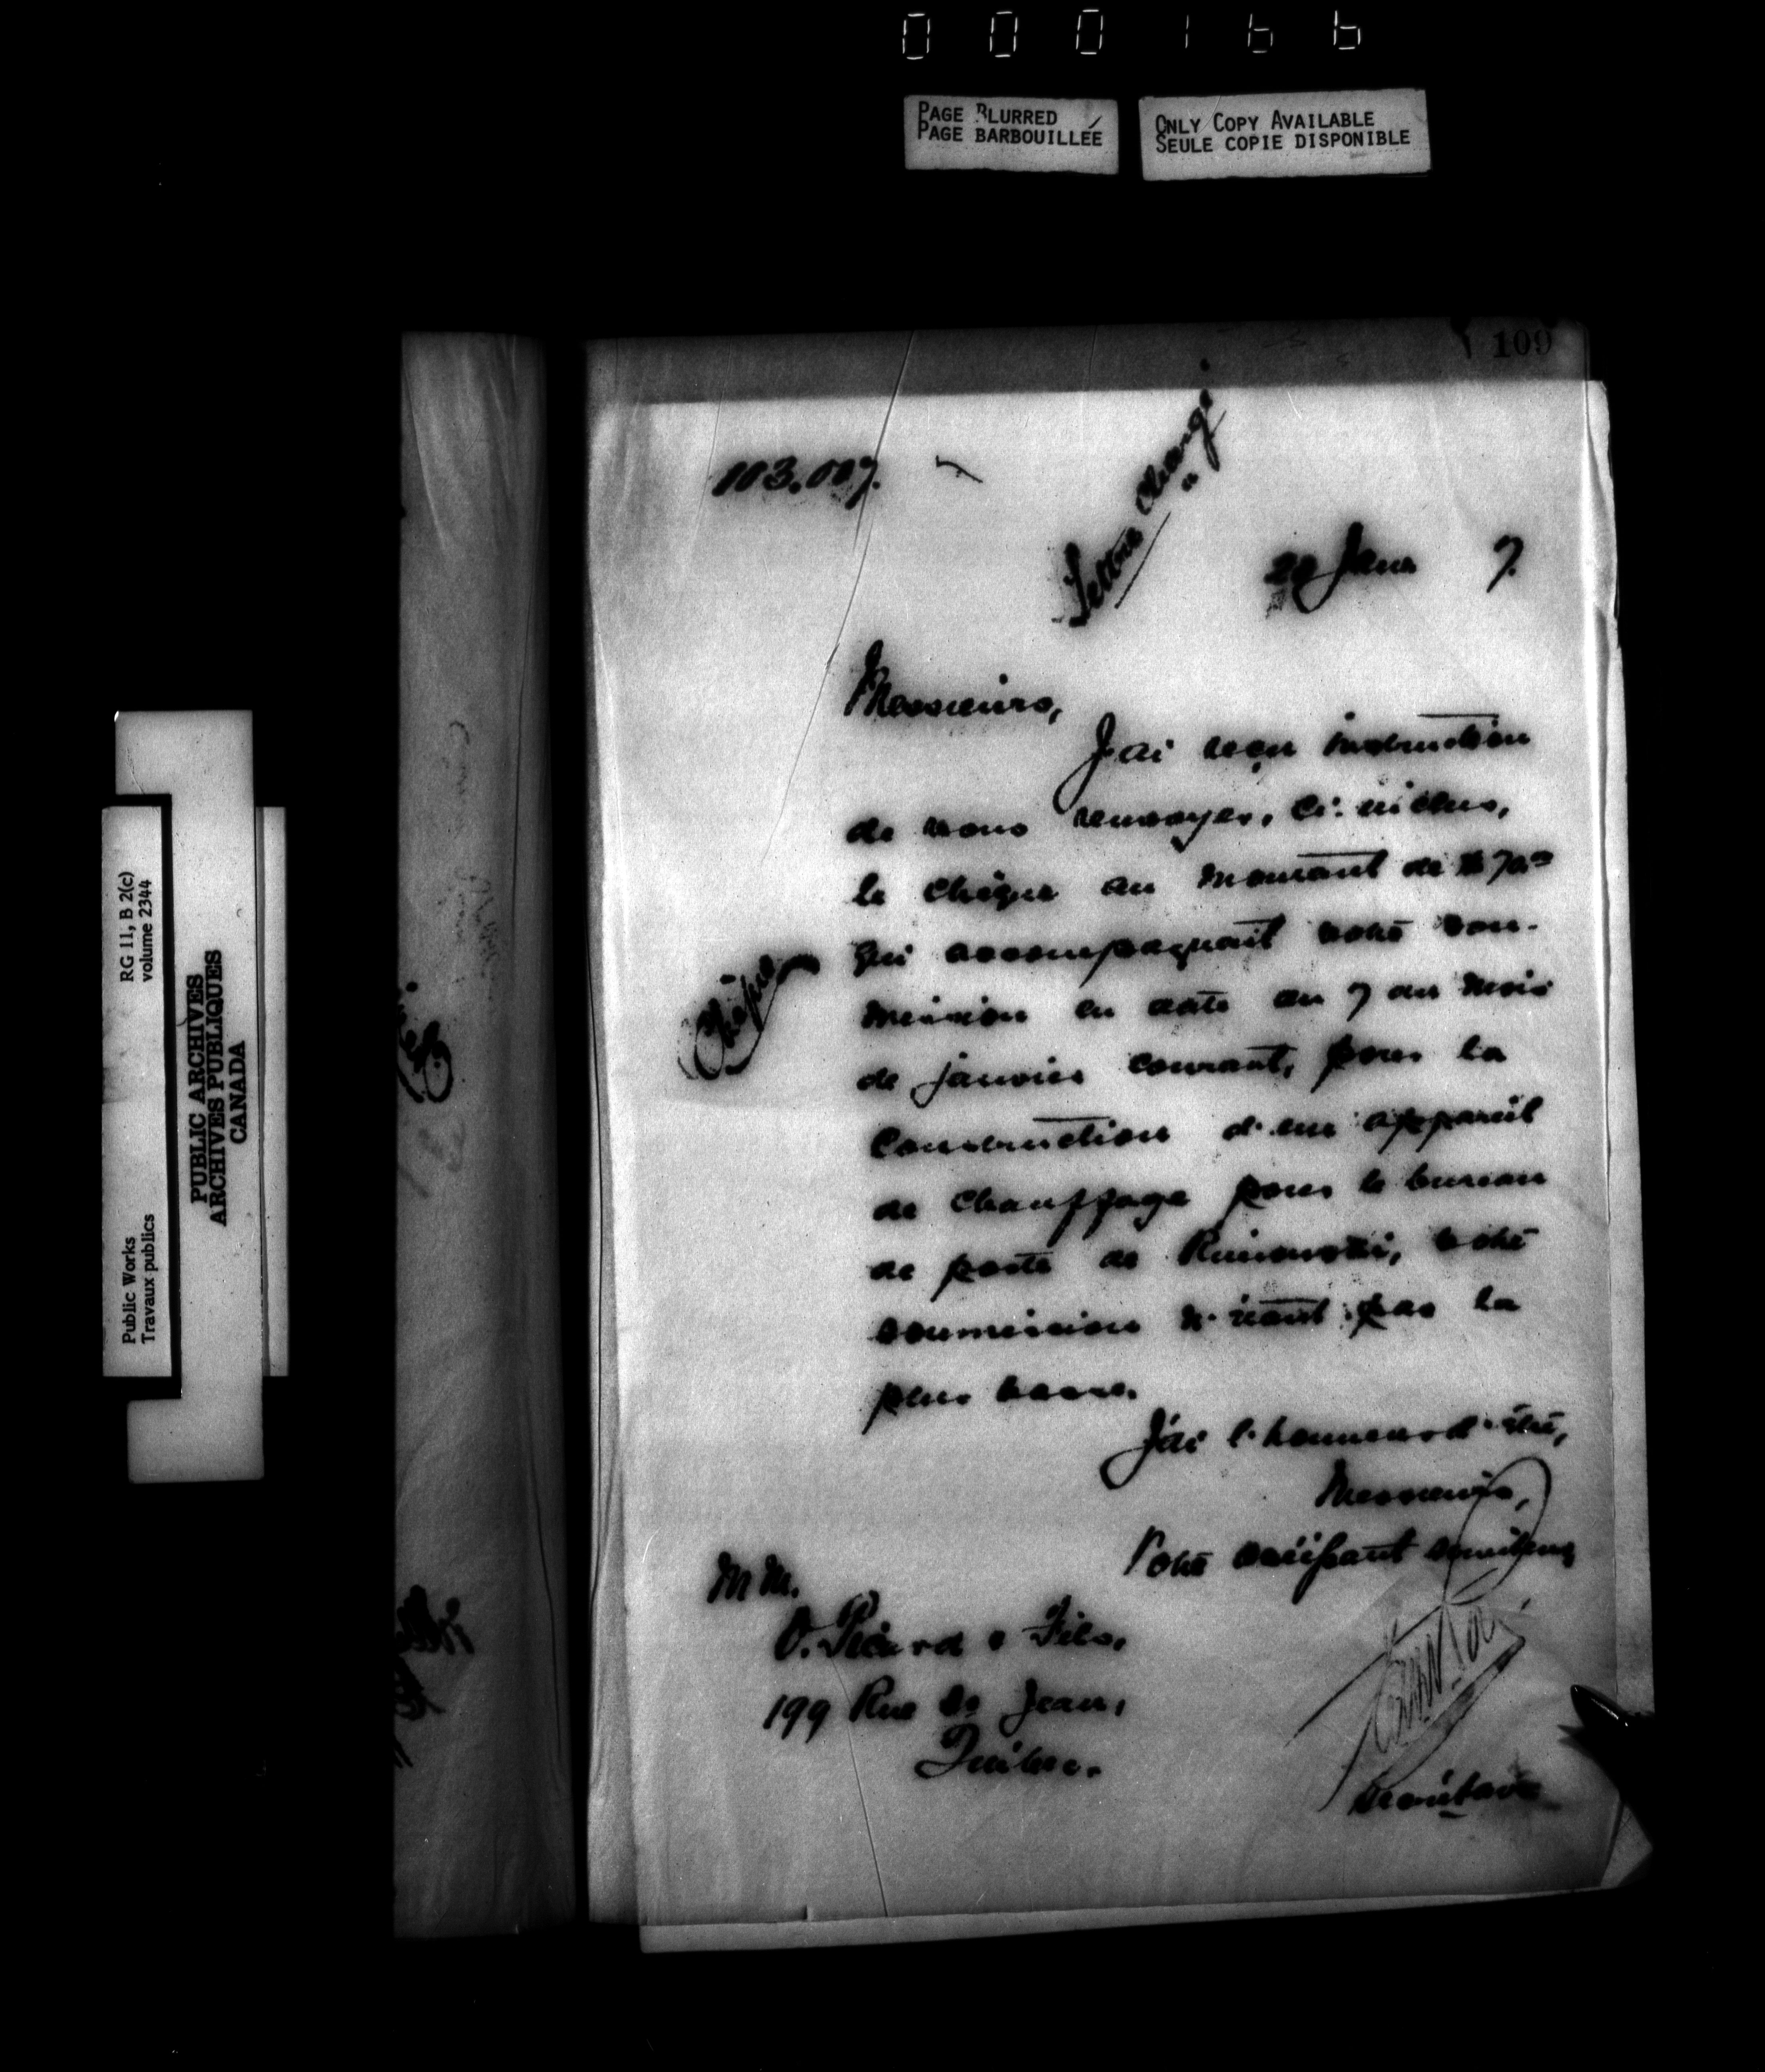 000166
PAGE BLURRED
PAGE BARBOUILLÉE
ONLY COPY AVAILABLE
SEULE COPIE DISPONIBLE
109
103.007.
Lettre chargé
20 Janr 7.
Messieurs,
J'ai reçu instruction
de vous renvoyer, ci-inclus,
le chèque au montant de
qui accompagnait votre sou-
mission en date du 7 du mois
de janvier courant, pour la
construction d'un appareil
de chauffage pour le bureau
de poste de Rimouski, votre
soumission n'étant pas la
plus basse.
J'ai l'honneur d'être,
Messieurs,
Votre obéissant serviteur
Secrétaire
Chèque
MM.
O. Picard & Fils,
199 Rue St Jean,
Québec.
Public Works
Travaux publics
RG 11, B 2(c)
volume 2344
PUBLIC ARCHIVES
ARCHIVES PUBLIQUES
CANADA